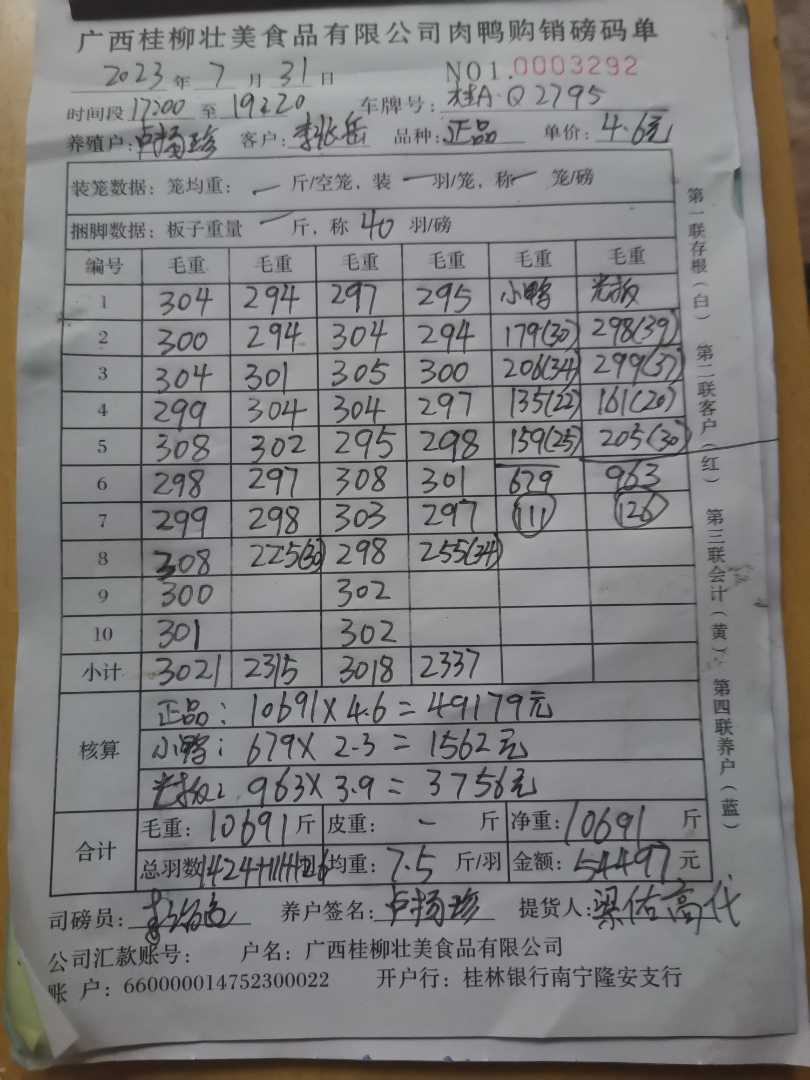 广西桂柳壮美食品有限公司肉鸭购销磅码单
2023年7月31日 NO1.0003292
时间段17:00至19:20 车牌号:桂A·Q2795
养殖户:卢扬珍 客户:李兆岳 品种:正品 单价:4.6元
装笼数据:笼均重:— 斤/空笼,装 — 羽/笼,称 — 笼/磅
捆脚数据:板子重量 — 斤,称 40 羽/磅
编号 毛重 毛重 毛重 毛重 毛重 毛重
1 304 294 297 295 小鸭 光板
2 300 294 304 294 179(30) 298(39)
3 304 301 305 300 206(34) 299(37)
4 299 304 304 297 135(22) 161(20)
5 308 302 295 298 159(25) 205(30)
6 298 297 308 301 679 963
7 299 298 303 297 111 126
8 308 225(30) 298 255(34)
9 300 302
10 301 302
小计 3021 2315 3018 2337
核算
正品:10691×4.6=49179元
小鸭:679×2.3=1562元
光板:963×3.9=3756元
合计
毛重:10691斤 皮重:— 斤 净重:10691 斤
总羽数1424+111+126 均重:7.5 斤/羽 金额:54497元
司磅员: 养户签名:卢扬珍 提货人:梁佑高代
公司汇款账号: 户名:广西桂柳壮美食品有限公司
账 户:660000014752300022 开户行:桂林银行南宁隆安支行
第一联存根(白) 第二联客户(红) 第三联会计(黄) 第四联养户(蓝)